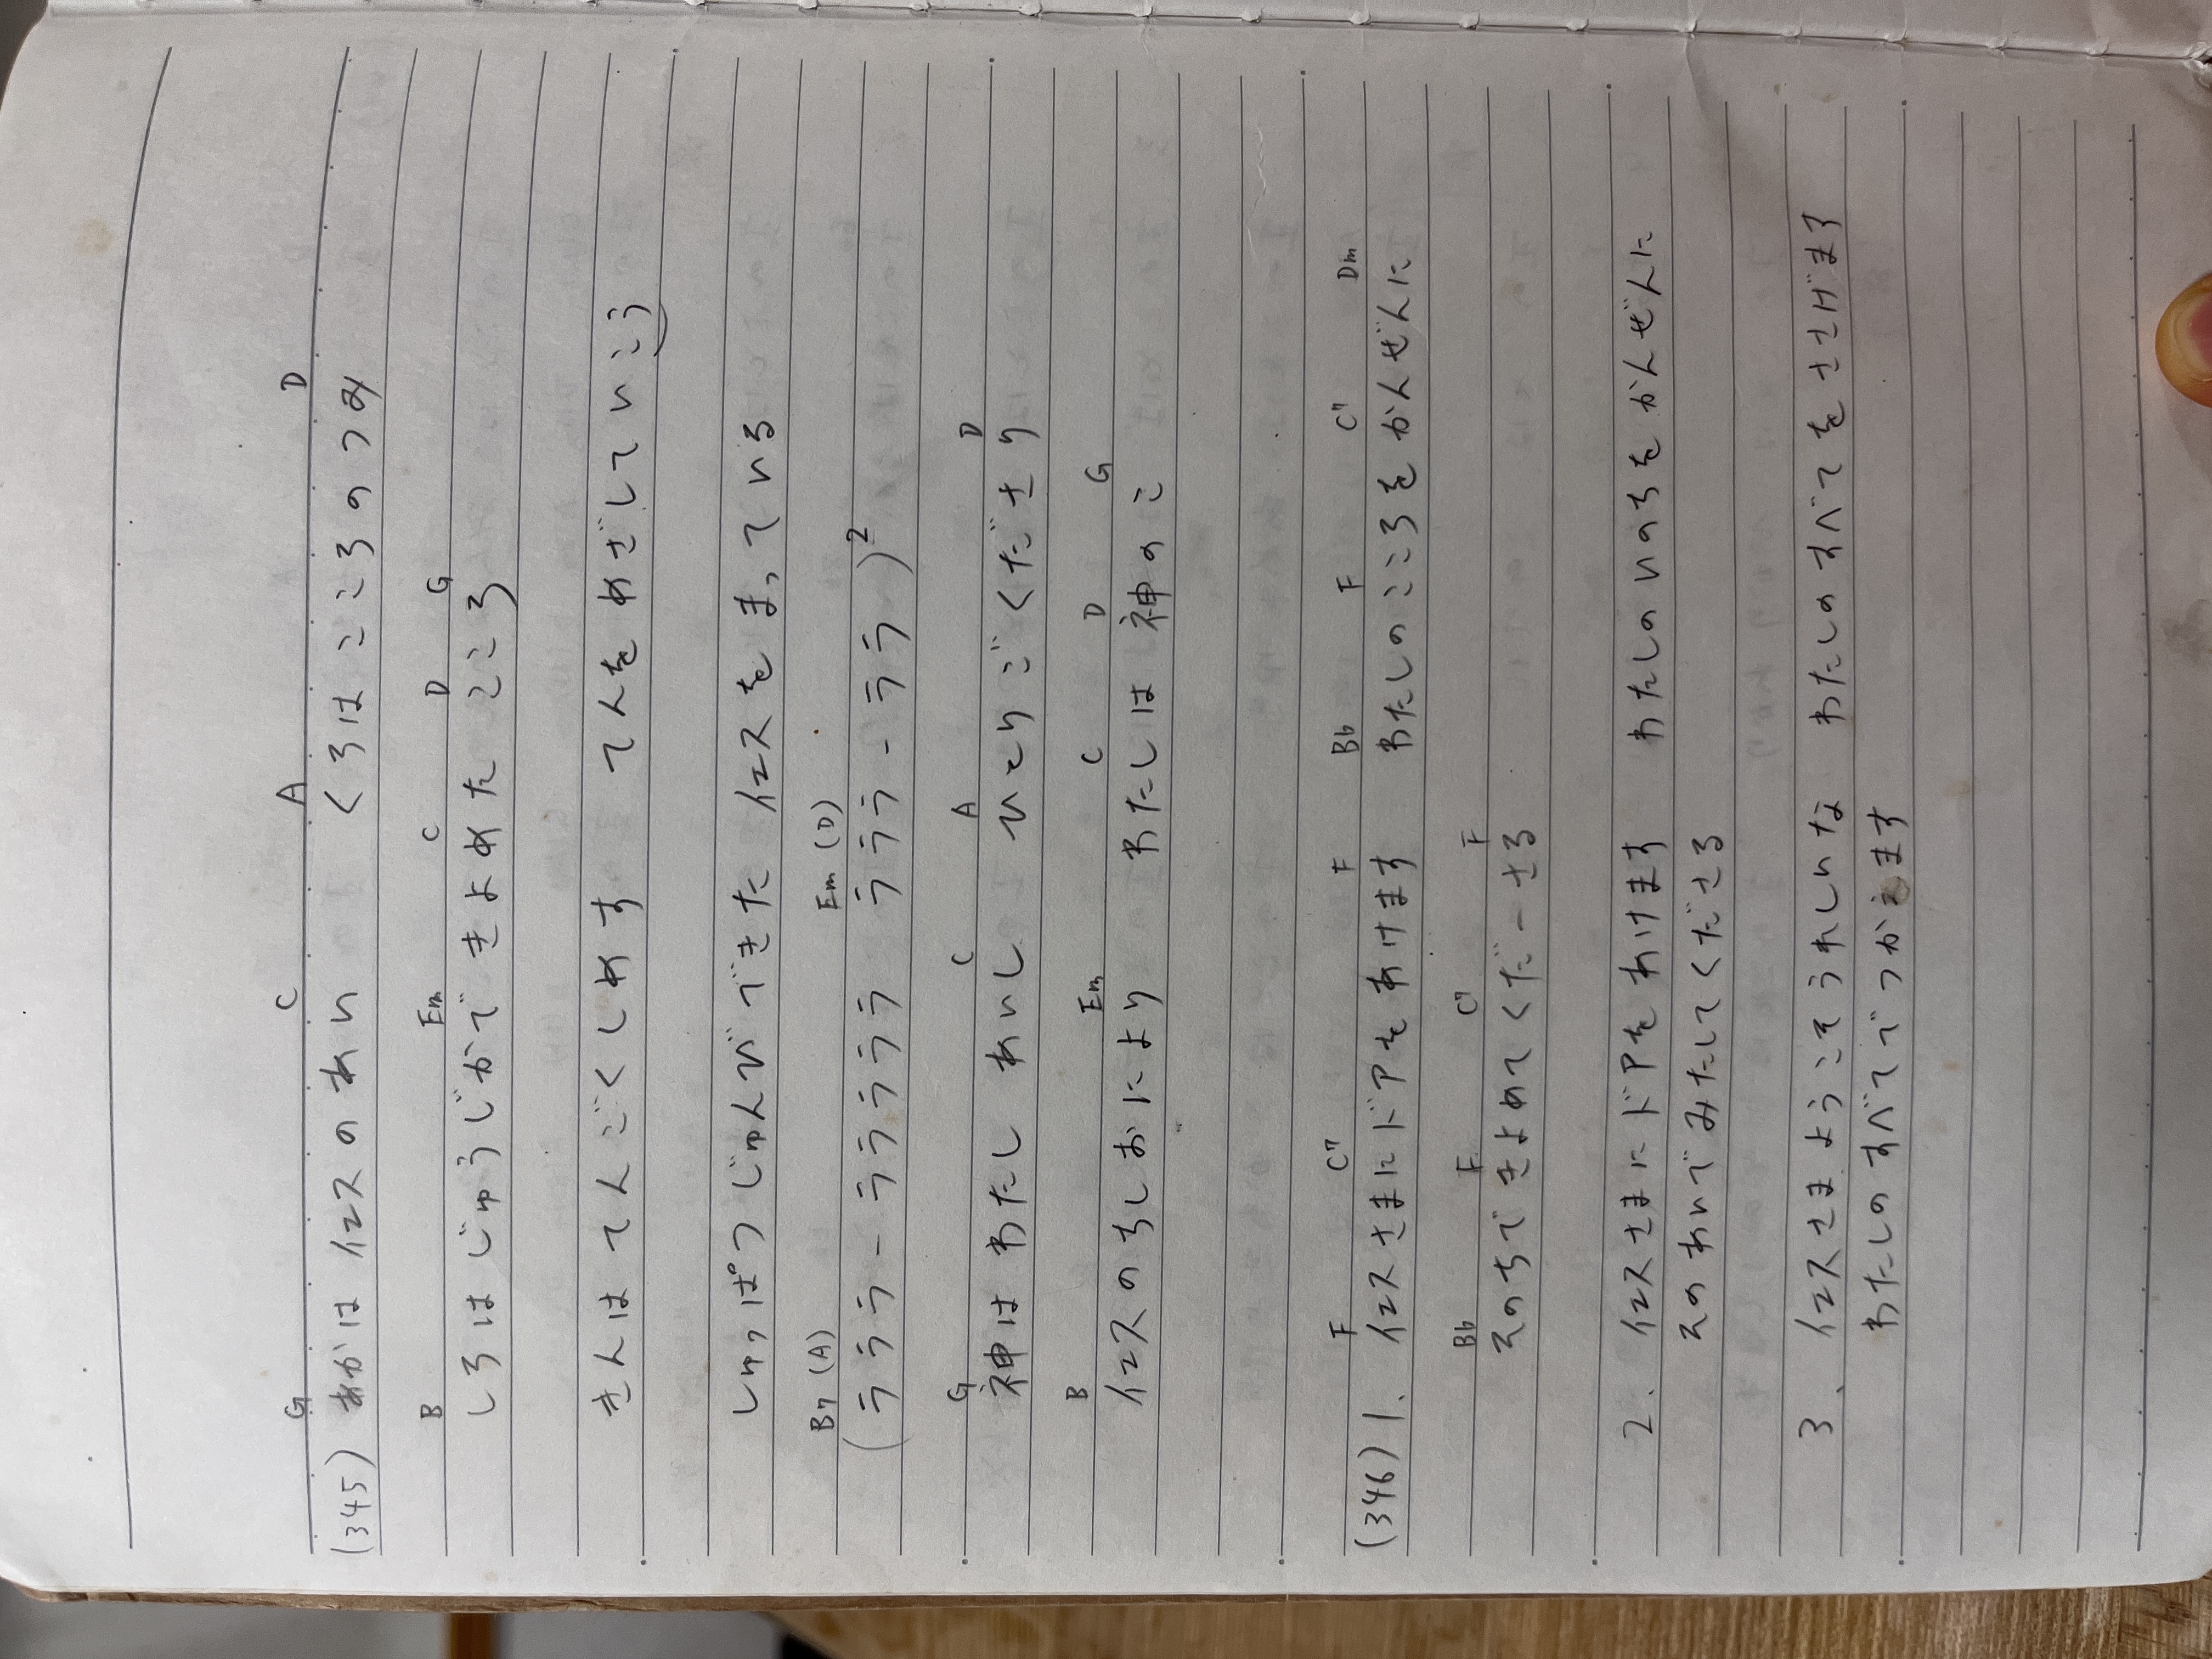 G C A D
(345) あかは イエスのあい くろは こころのつみ
B Em C D G
しろは じゅうじかで きよめた こころ
きんは てんごくしめす てんを めざしていこう
しゅっぱつ じゅんび できた イエスを まっている
B7 (A) Em (D)
(ラララ - ラララララ ラララ - ララ)²
G C A D
神は わたし あいし ひとりご くださり
B Em C D G
イエスのちしおにより わたしは 神のこ
F C7 F Bb F C7 Dm
(346) 1. イエスさまにドアをあけます わたしのこころをかんぜんに
Bb F C7 F
そのちで きよめてくだーさる
2. イエスさまに ドアを あけます わたしのいのちを かんぜんに
そのあいで みたしてくださる
3. イエスさま ようこそ うれしいな わたしの すべてを ささげます
わたしの すべてで つかえます